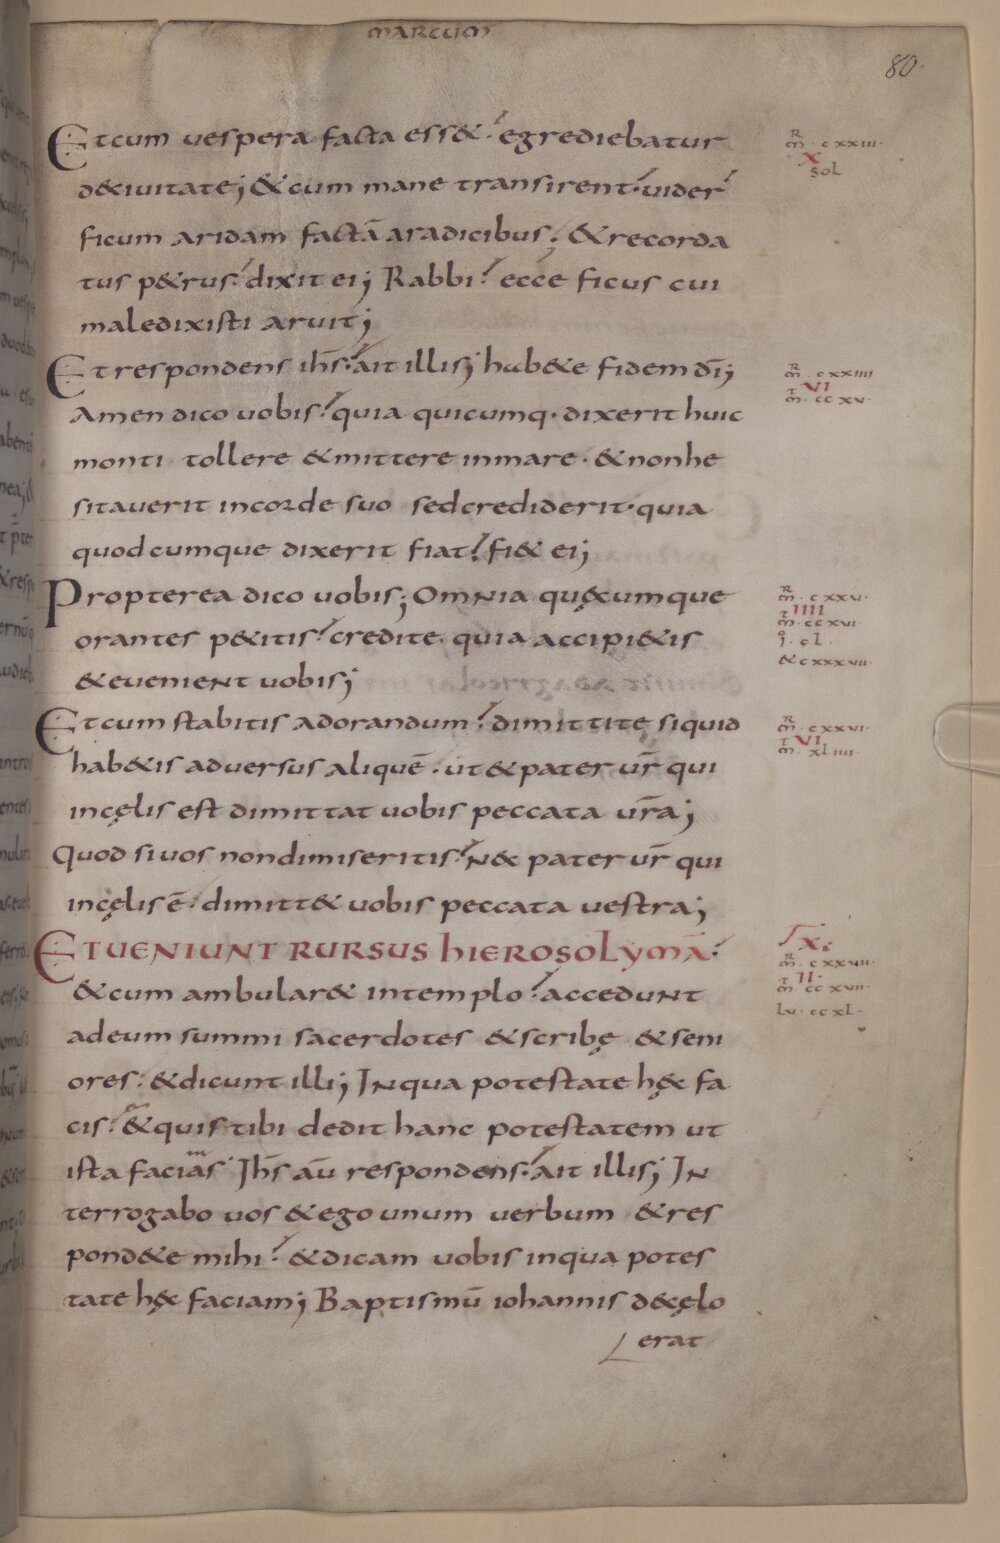 MARCUM
80.
Et cum vespera facta ess& egrediebatur
d&ivitate; & cum mane transirent. vider
ficum aridam factā aradicibus; & recorda
tus p&rus. dixit ei; Rabbi. ecce ficus cui
maledixisti aruit;
Et respondens ihs. ait illis; hab&e fidem dī;
Amen dico uobis. quia quicumq. dixerit huic
monti tollere & mittere in mare. & non he
sitaverit in corde suo sed crediderit. quia
quodcumque dixerit fiat. fi& ei;
Propterea dico uobis; Omnia quęcumque
orantes p&itis. credite. quia accipi&is
& evenient vobis;
Et cum stabitis adorandum. dimittite siquid
hab&is adversus aliquē. ut & pater ur̄ qui
in cęlis est dimittat vobis peccata ur̄a;
Quod si vos non dimiseritis. nec pater ur̄ qui
in cęlis ē. dimitt& vobis peccata vestra;
ET UENIUNT RURSUS HIEROSOLYMĀ.
& cum ambular& in templo. accedunt
ad eum summi sacerdotes & scribę & seni
ores. & dicunt illi; In qua potestate hęc fa
cis. & quis tibi dedit hanc potestatem ut
ista facias Ihs aū respondens. ait illis; In
terrogabo vos & ego unum verbum & res
pond&e mihi. & dicam vobis in qua potes
tate hęc faciam; Baptismū iohannis de cęlo
erat
R
m. cxxiii.
X
sol
R
m. cxxiiii
VI
m. ccxv.
R
m. cxxv.
IIII
m. ccxvi.
i. cl.
& cxxxvii.
R
m. cxxvi.
VI
m. xliiii.
X
R
m. cxxvii.
II.
m. ccxvii.
Lu. ccxl.